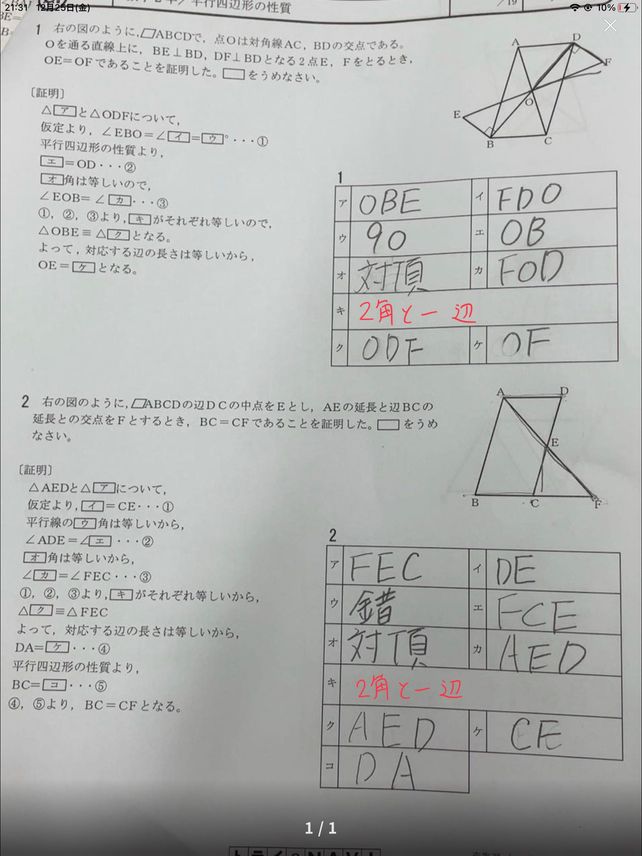 21:31 12月25日(金)
10%
平行四辺形の性質
/19
BE=
1 右の図のように,▱ABCDで, 点Oは対角線AC, BDの交点である。
Oを通る直線上に, BE⊥BD, DF⊥BDとなる2点E, Fをとるとき,
OE=OFであることを証明した。□をうめなさい。
〔証明〕
△アと△ODFについて,
仮定より, ∠EBO=∠イ=ウ°・・・①
平行四辺形の性質より,
エ=OD・・・②
オ角は等しいので,
∠EOB=∠カ・・・③
①, ②, ③より,キがそれぞれ等しいので,
△OBE≡△クとなる。
よって, 対応する辺の長さは等しいから,
OE=ケとなる。
A D F O E B C
1
ア OBE イ FDO
ウ 90 エ OB
オ 対頂 カ FOD
キ 2角と一辺
ク ODF ケ OF
2 右の図のように,▱ABCDの辺DCの中点をEとし, AEの延長と辺BCの
延長との交点をFとするとき, BC=CFであることを証明した。□をうめ
なさい。
〔証明〕
△AEDと△アについて,
仮定より,イ=CE・・・①
平行線のウ角は等しいから,
∠ADE=∠エ・・・②
オ角は等しいから,
∠カ=∠FEC・・・③
①, ②, ③より,キがそれぞれ等しいから,
△ク≡△FEC
よって, 対応する辺の長さは等しいから,
DA=ケ・・・④
平行四辺形の性質より,
BC=コ・・・⑤
④, ⑤より, BC=CFとなる。
A D E B C F
2
ア FEC イ DE
ウ 錯 エ FCE
オ 対頂 カ AED
キ 2角と一辺
ク AED ケ CE
コ DA
1 / 1